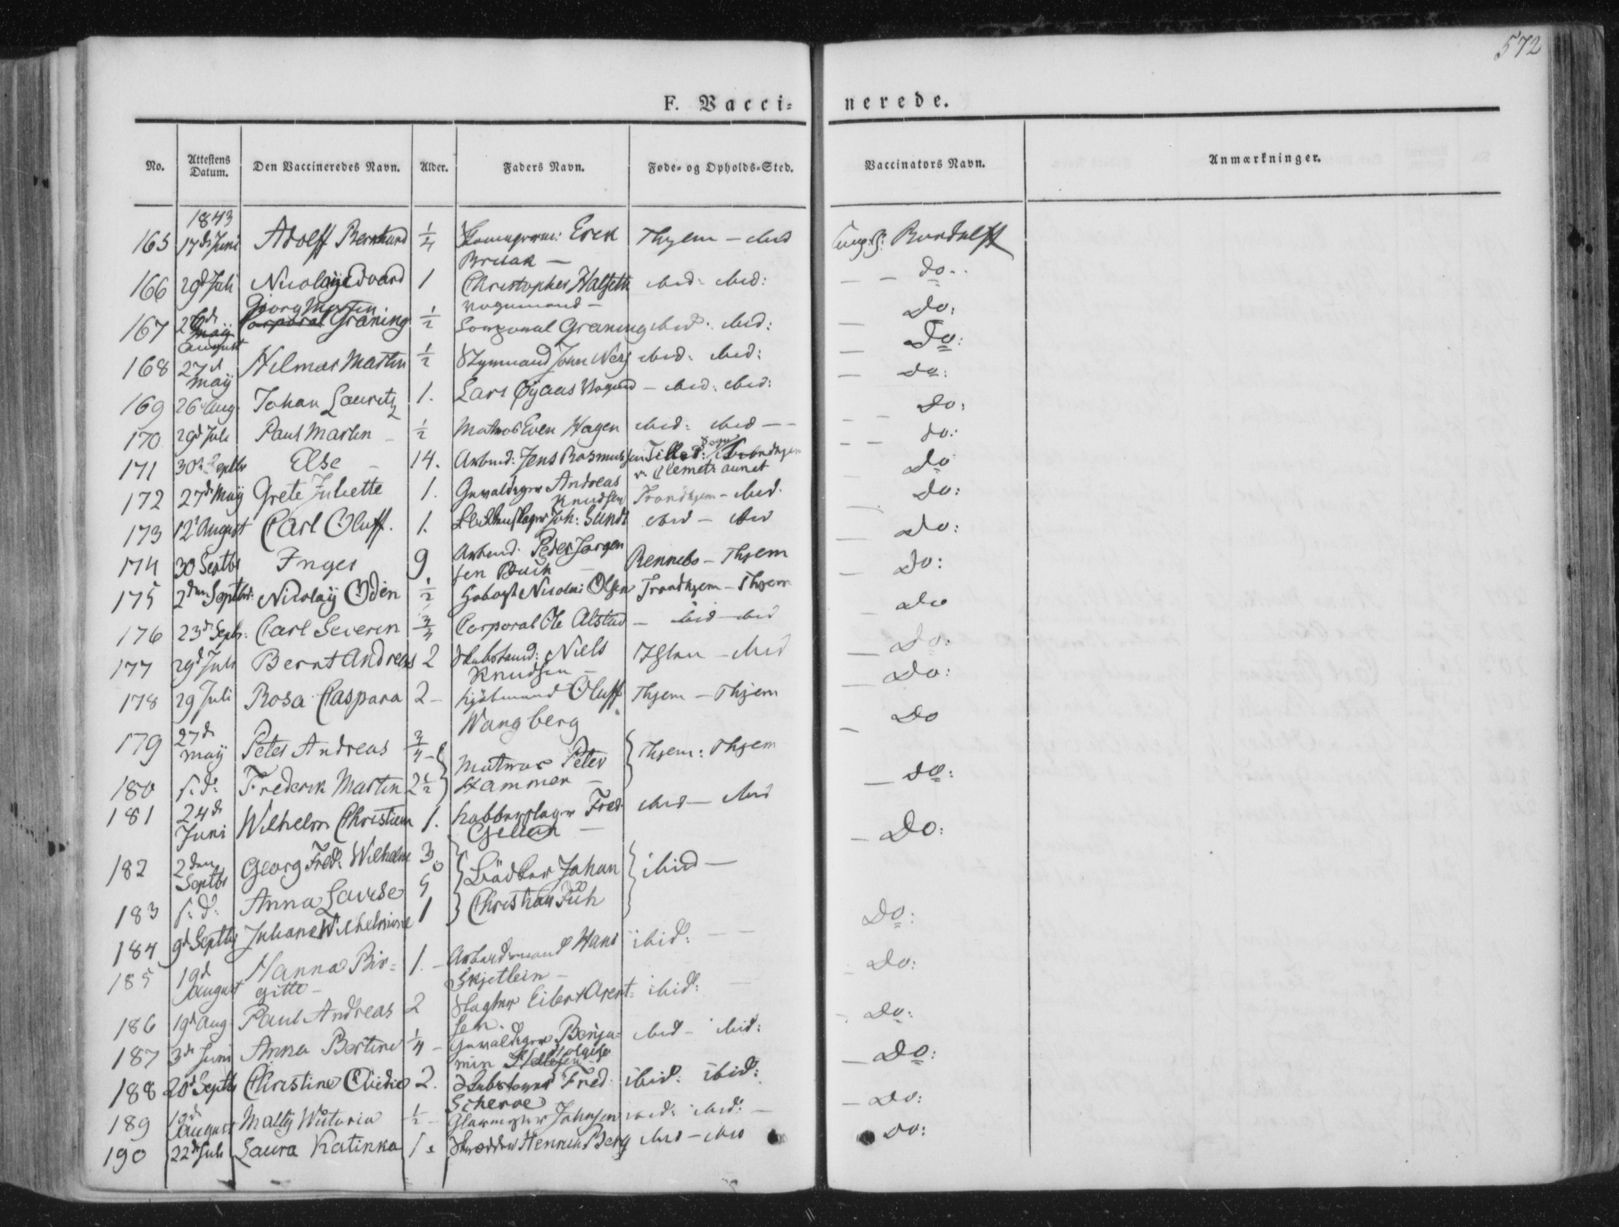 572
F. Vaccinerede.
No. Attestens Datum. Den Vaccineredes Navn. Alder. Faders Navn. Føde- og Opholds-Sted. Vaccinators Navn. Anmærkninger.
1843
165 17de Juni Adolff Bernhard 1/4 Erik Thjem - ibid
166 29d Juli Nicolay Edvard 1 Christopher Halseth ibid: ibid: do.
Georg Morten
167 26de Corporal Græning 1/2 Corporal Græning ibid: ibid: Do:
August
168 27d May Hilmar Martin 1/2 Styrmand John ibid: ibid: Do:
169 26 Aug. Johan Lauritz 1. Lars ibid: ibid: do:
170 29d Juli Paul Martin 1/2 Matros Even Hagen ibid: ibid do:
171 30te Septbr Else 14. Arbmd: Jens Rasmussen do:
172 27de May Grete Juliette 1. Andreas Knudsen Trondhjem - ibid. do:
173 12t August Carl Oluff. 1. Joh: Lund ibid - ibid Do:
174 30 Septbr Inger 9 Arbmd: Peder Jørgen
sen Buck Rennebo - Thjem do:
175 2den Septbr: Nicolay Odin 1/2 Nicolai Olsen Trondhjem - Thjem do
176 23de Septr: Carl Severin 3/4 Corporal Ole Alstad - ibid - ibid Do:
177 29d Juli Bernt Andreas 2 Niels Knudsen - ibid Do:
178 29 Juli Rosa Caspara 2 - Oluff Wangberg Thjem - Thjem Do
179 27de May Peter Andreas 3/4 Matros Peter Hammer Thjem: Thjem
180 s: d: Frederik Martin 2 1/2 do:
181 24de Juni Wilhelm Christian 1. Kobberslager Fred. ibid - ibid Do:
182 2den Septbr Georg Fred: Wilhelm Bödker Johan ibid -
183 s: d: Anna Lovise 5 Christian Do:
184 9d Septbr Juliane Wilhelmine 1
185 19d August Hanna Bir-
gitte - 1. - Arbeidsmand Hans Skjetlein - ibid: Do:
186 19d Aug: Paul Andreas 2 Slagter Eilert Arent-
sen. ibid: Do:
187 3de Juni Anna Bertine 1/4 - Benja-
min ibid - ibid: Do:
188 20d Septbr Christine 2. Fred: ibid: ibid: Do:
189 19d August 1/2 - Glarmester Johnsen ibid: ibid: -
190 22de Juli Laura Katinka 1. Skrædder Henrich Berg ibid - ibid Do: